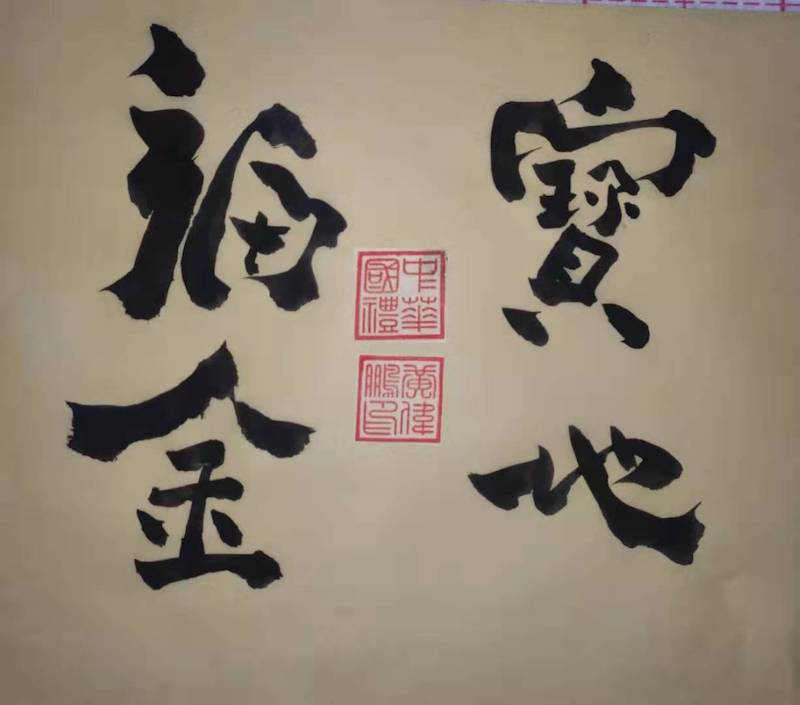 寶地
中華國禮
黃偉鵬印
福金